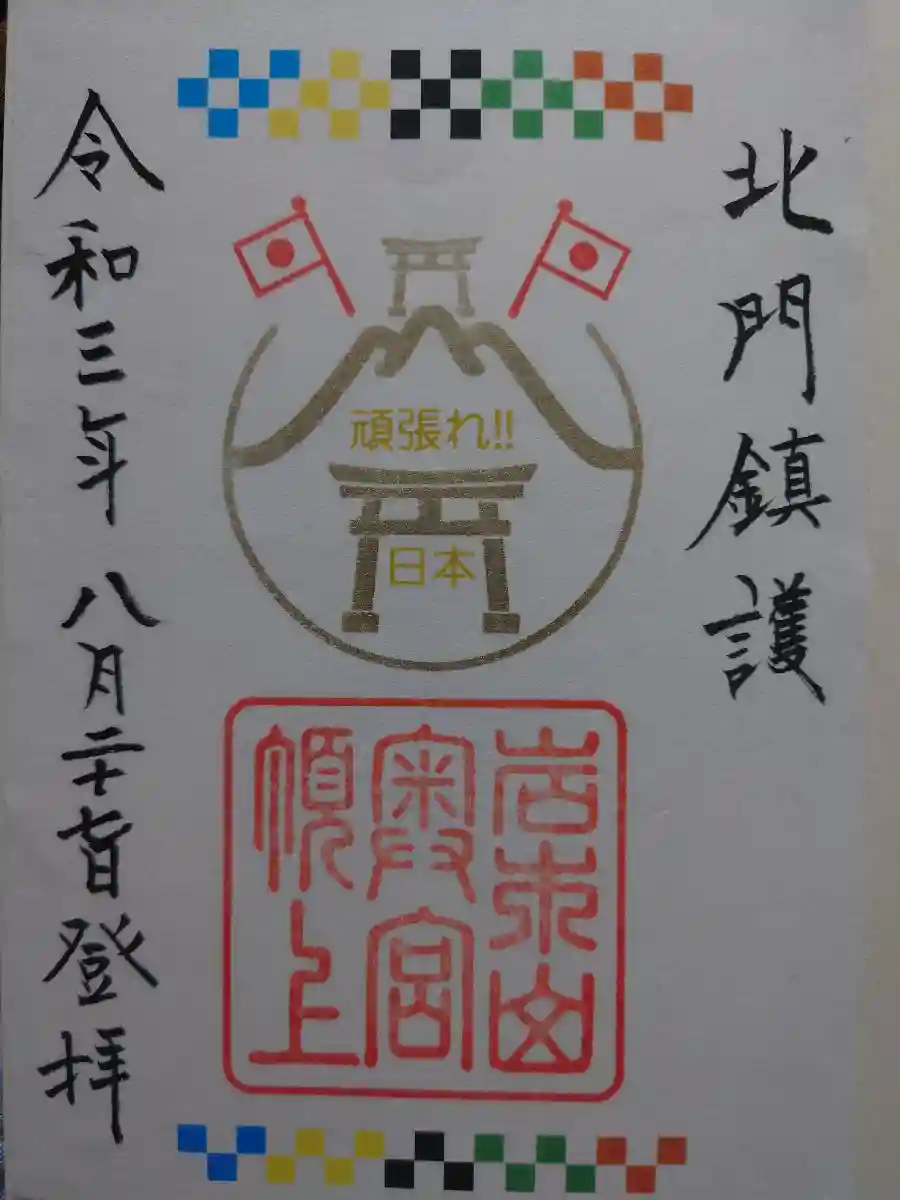 北門鎮護
頑張れ!!
日本
岩木山
奥宮
頂上
令和三年 八月二十七日登拝